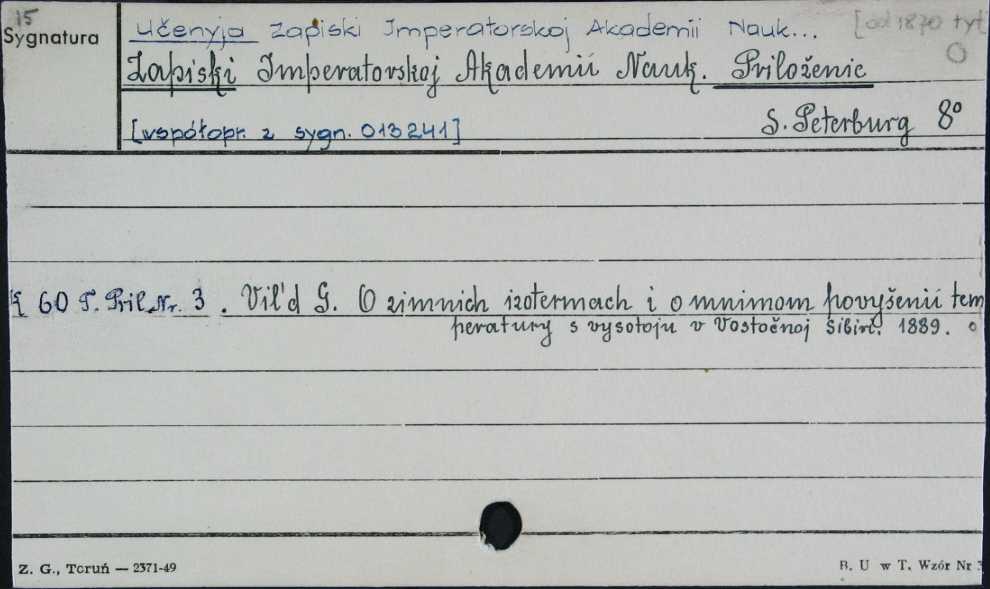 15
Sygnatura
Učenyja Zapiski Imperatorskoj Akademii Nauk... [od 1870 tyt
O
Zapiski Imperatorskoj Akademii Nauk. Priloženie
[współopr. z sygn. 013241] S. Peterburg 8°
60 T. Pril. Nr. 3. Vil'd G. O zimnich izotermach i o mnimom povyšenii tem
peratury s vysotoju v Vostočnoj Sibiri. 1889.
Z. G., Toruń — 2371-49
B. U w T. Wzór Nr